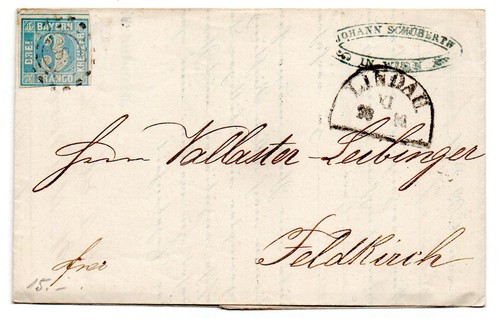 BAYERN
DREI
3
KREUZER
FRANCO
JOHANN SCHUBERTH
IN WIEN
LINDAU
VI
Herrn Vallaster-Leibinger
Feldkirch
frei
15.-